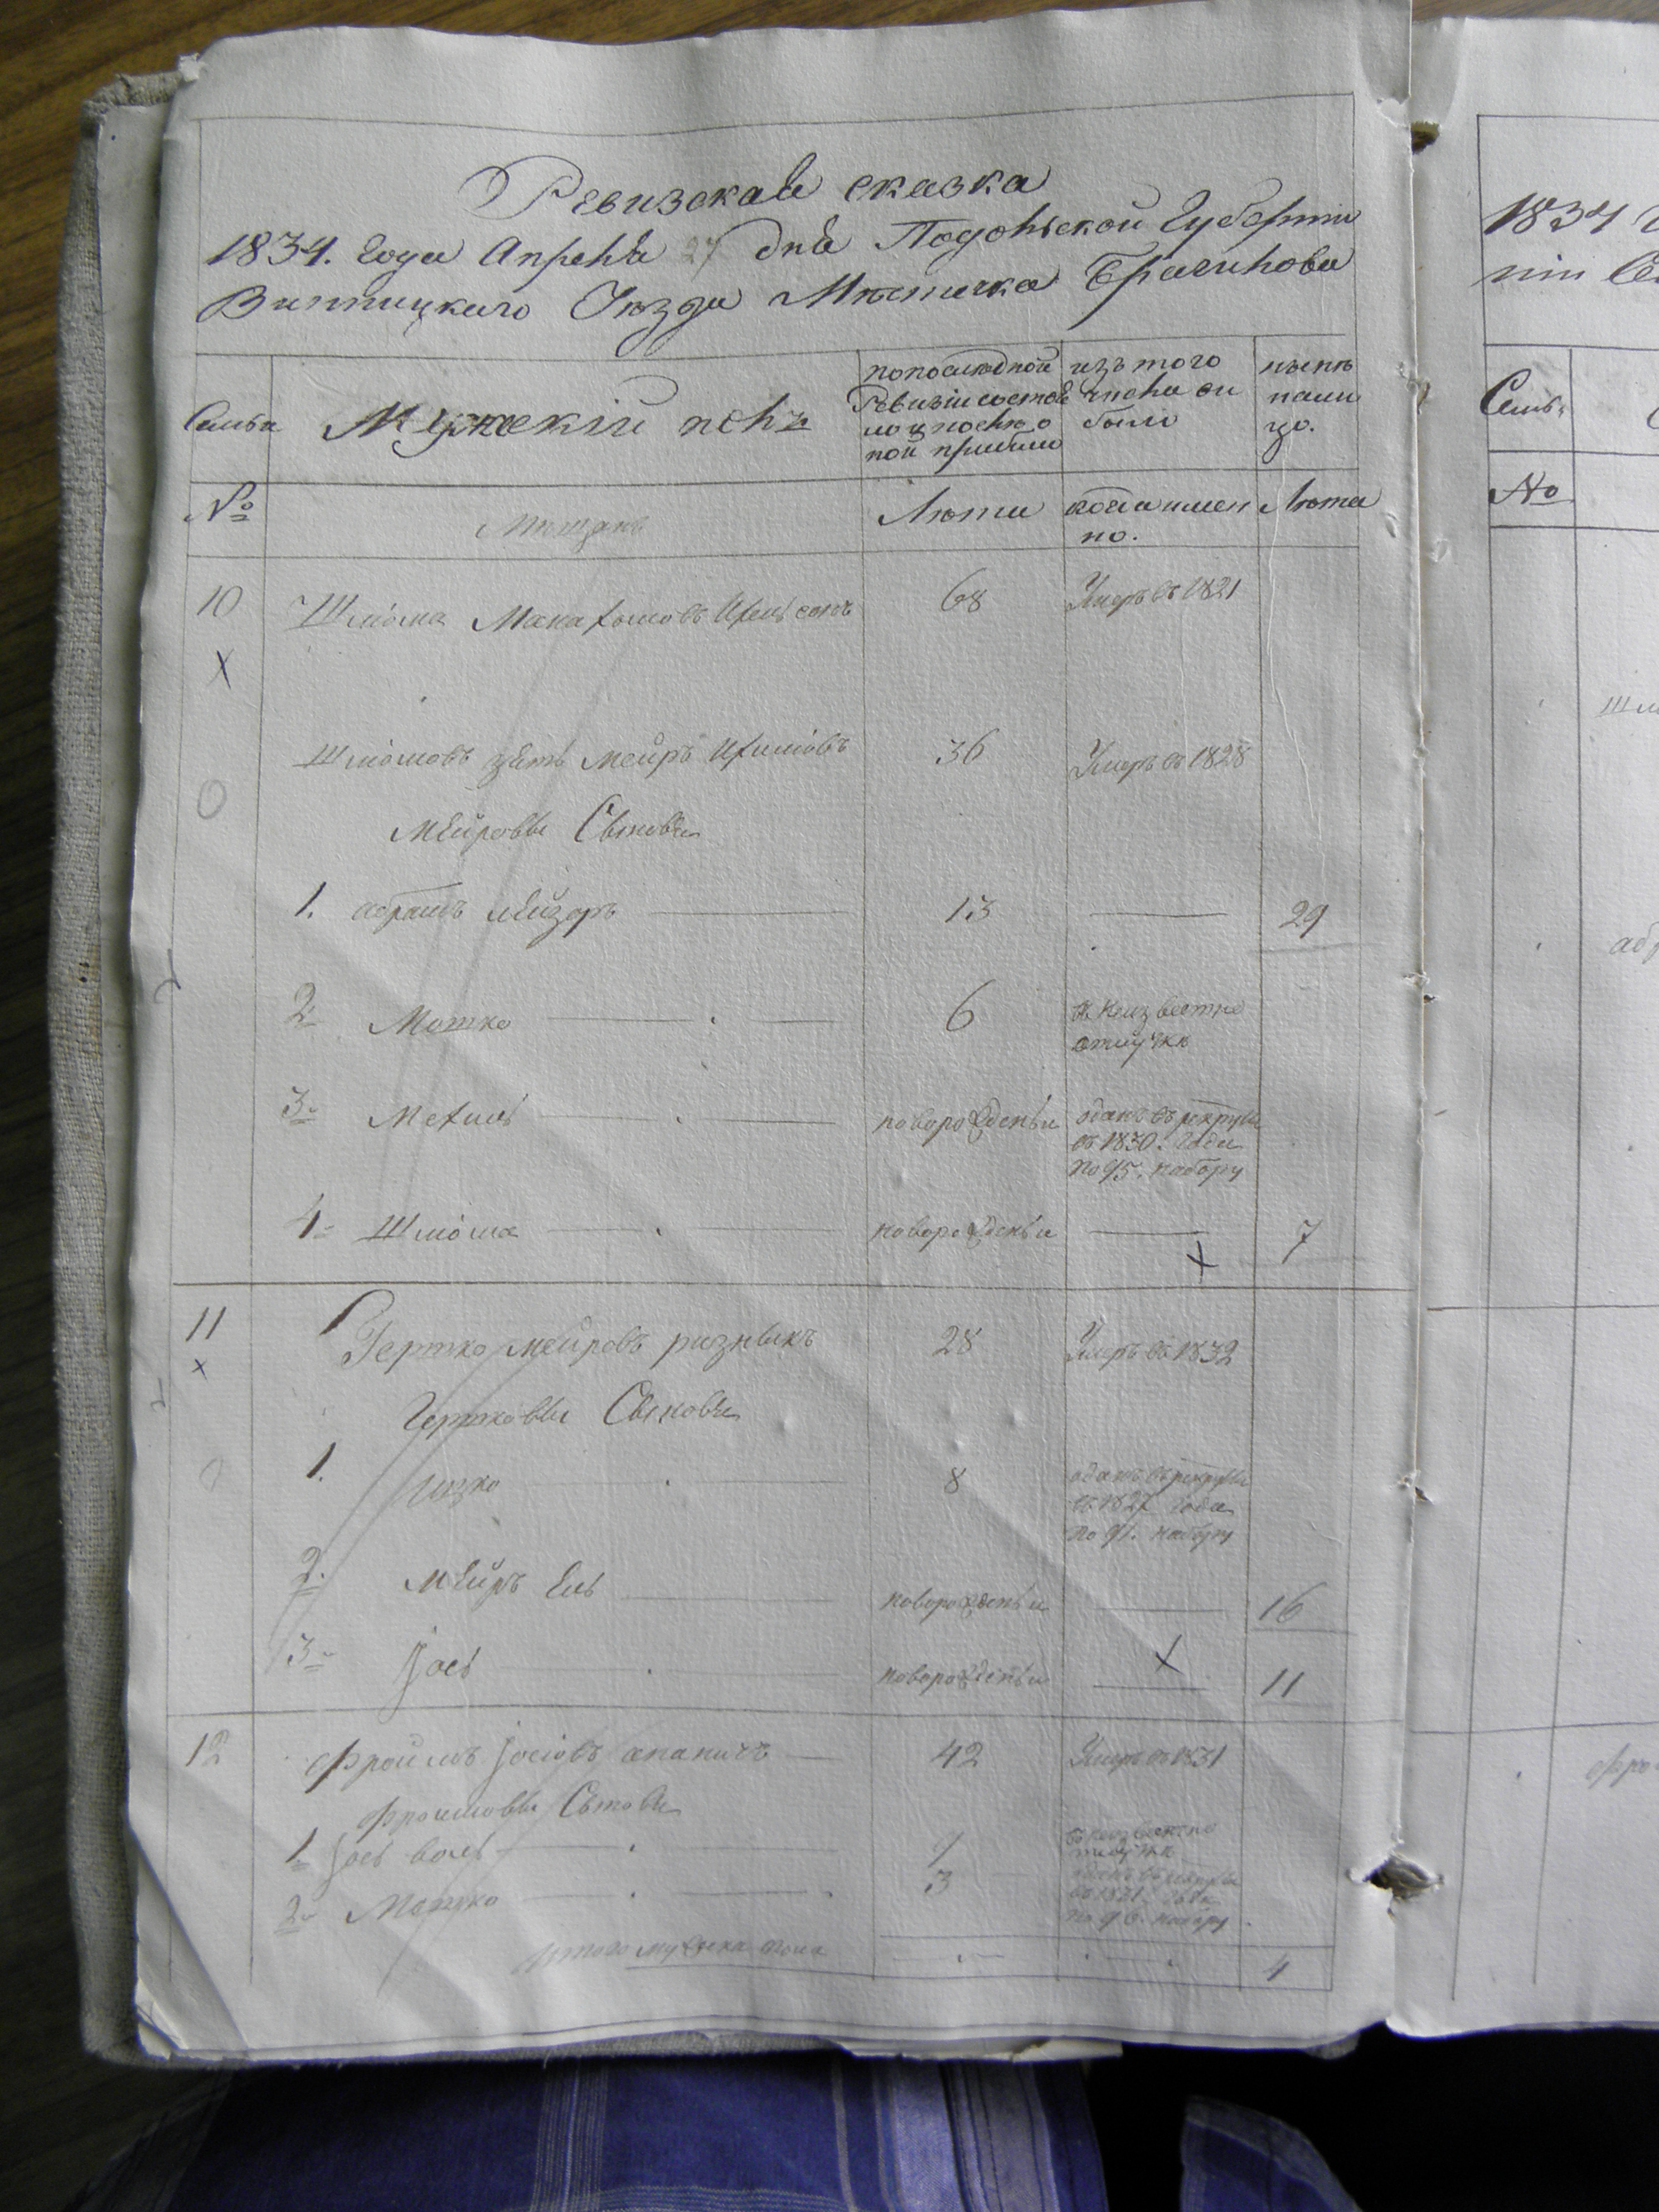 Ревизская сказка
1834. Года Апреля 27 дня Подольской Губерніи
Винницкаго Уѣзда Мѣстечка Браилова
Семьи
Мужескій полъ
по последной
Ревизіи состоя
ло и послѣ о
ной прибыло
изъ того
числа вы
было
нынѣ
нали
цо.
№
Мѣщанъ
Лѣти
когда имен
но.
Лѣта
10
Шліома
68
Умеръ въ 1821
Шліомовъ зять Мейръ
36
Умеръ въ 1828
Мейровы Сыновья
1. абрамъ лейзоръ
13
29
2. Мотко
6
в неизвестно
отлучкѣ
3. Мехель
новорожденый
оданъ въ рекруты
въ 1830. Года
по 95. набору
4. Шліома
новорожденый
7
11
Гершко мейровъ ризныкъ
28
Умеръ въ 1832
Гершковы Сыновья
1.
Ицко
8
оданъ въ рекруты
въ 1827 Года
по 91. набору
2. Мейръ
новорожденый
16
3. Іось
новорожденый
11
12
Фроимъ Іосіовъ
42
Умеръ въ 1831
Фроимовы Сыновья
1. Іось
7
в неизвестно
2. Мошко
3
оданъ въ рекруты
по 96. набору
Итого мужеска пола
4
1834
Семьи
№